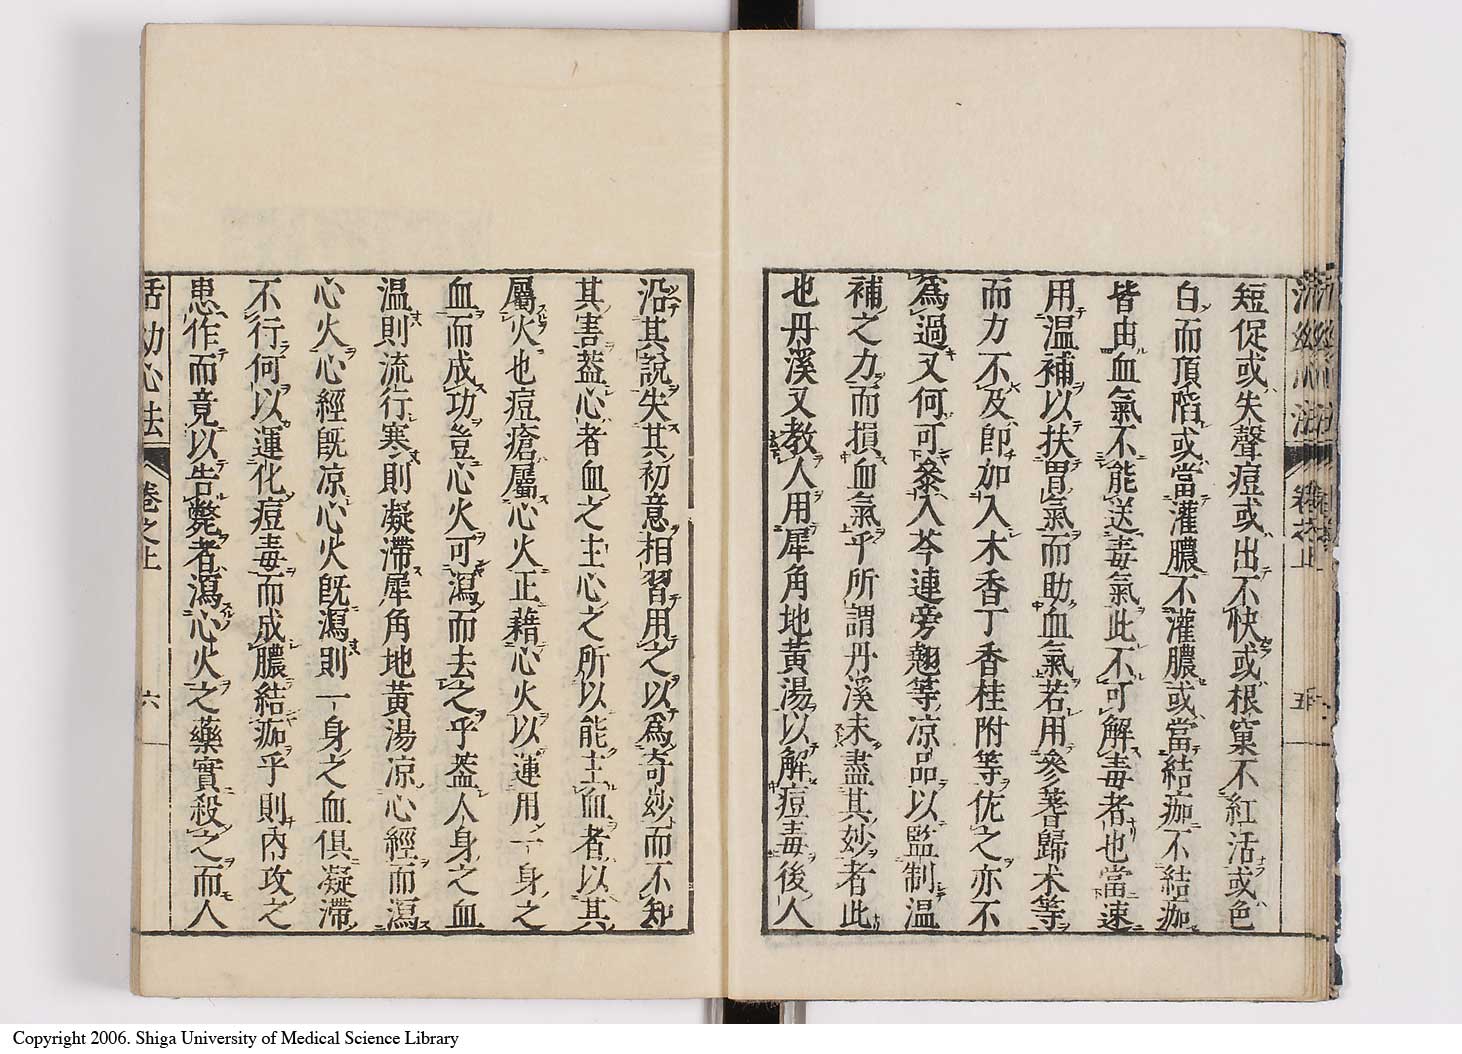 短促或失聲痘或出不快或根窠不紅活或色
白而頂陷或當灌膿不灌膿或當結痂不結痂
皆由血氣不能送毒氣此不可解毒者也當速
用温補以扶胃氣而助血氣若用參蓍歸术等
而力不及卽加入木香丁香桂附等佐之亦不
爲過又何可叅入芩連旁翹等凉品以監制温
補之力而損血氣乎所謂丹溪未盡其妙者此
也丹溪又教人用犀角地黃湯以解痘毒後人
沿其說失其初意相習用之以爲奇妙而不知
其害葢心者血之主心之所以能主血者以其
屬火也痘瘡屬心火正藉心火以運用一身之
血而成功豈心火可瀉而去之乎葢人身之血
温則流行寒則凝滯犀角地黃湯凉心經而瀉
心火心經旣凉心火旣瀉則一身之血俱凝滯
不行何以運化痘毒而成膿結痂乎則內攻之
患作而竟以告斃者瀉心火之藥實殺之而人
活幼心法
卷之上
六
五
Copyright 2006. Shiga University of Medical Science Library